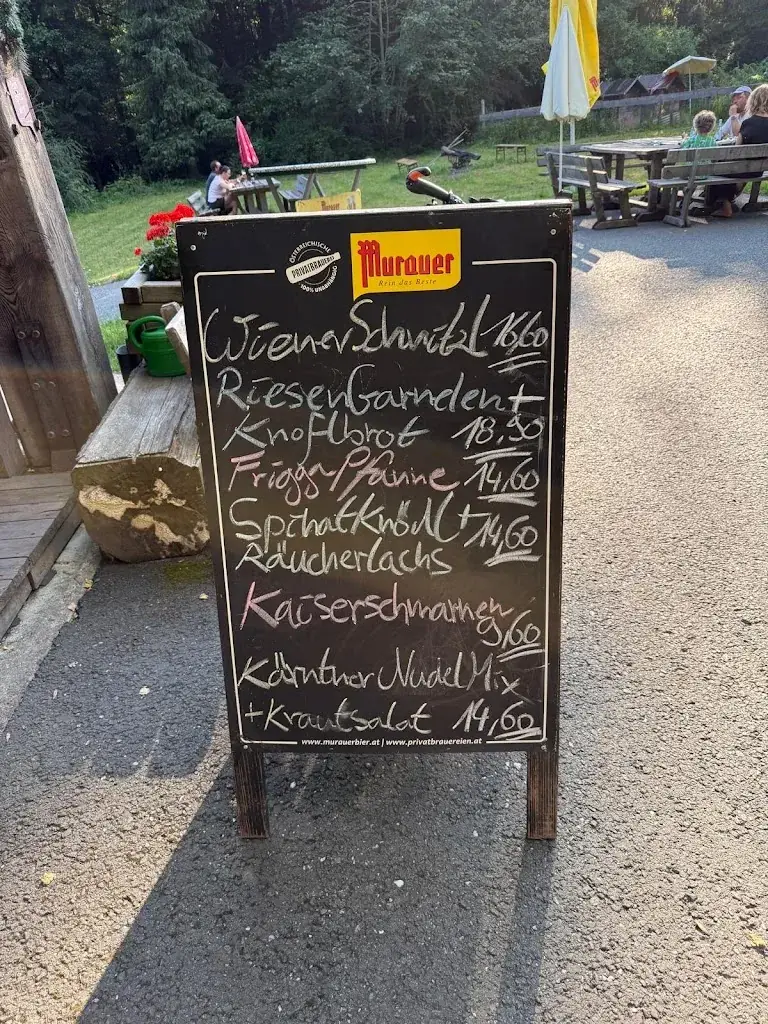 ÖSTERREICHISCHE
PRIVATBRAUEREI
100% UNABHÄNGIG
Murauer
Rein das Beste
Wiener Schnitzl 16,60
Riesen Garnelen +
Knoflbrot 18,90
Frigga Pfanne 14,60
Spinat Knödl + 14,60
Räucherlachs
Kaiserschmarren
9,60
Kärntner Nudel Mix
+ Krautsalat 14,60
www.murauerbier.at | www.privatbrauereien.at